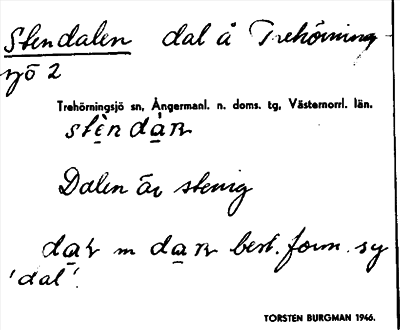 Stendalen dal å Trehörning
sjö 2
Trehörningsjö sn, Ångermanl. n. doms. tg, Västernorrl. län.
stèndàn
Dalen är stenig
dar m dan best. form. sg
'dal'.
TORSTEN BURGMAN 1946.